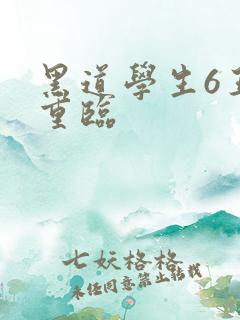 黑道學生6
重臨
七妖格格
未任同意禁止轉載